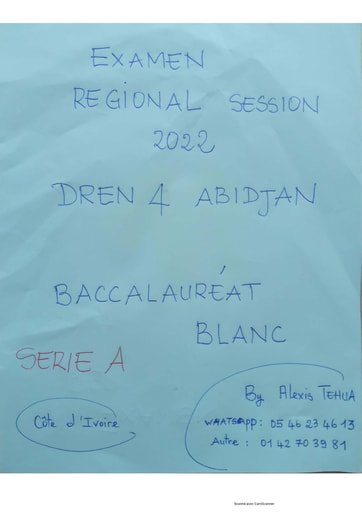 EXAMEN
REGIONAL SESSION
2022
DREN 4 ABIDJAN
BACCALAURÉAT
BLANC
SERIE A
Côte d'Ivoire
By Alexis TEHUA
WHATSApp : 05 46 23 46 13
Autre : 01 42 70 39 81
Scanné avec CamScanner